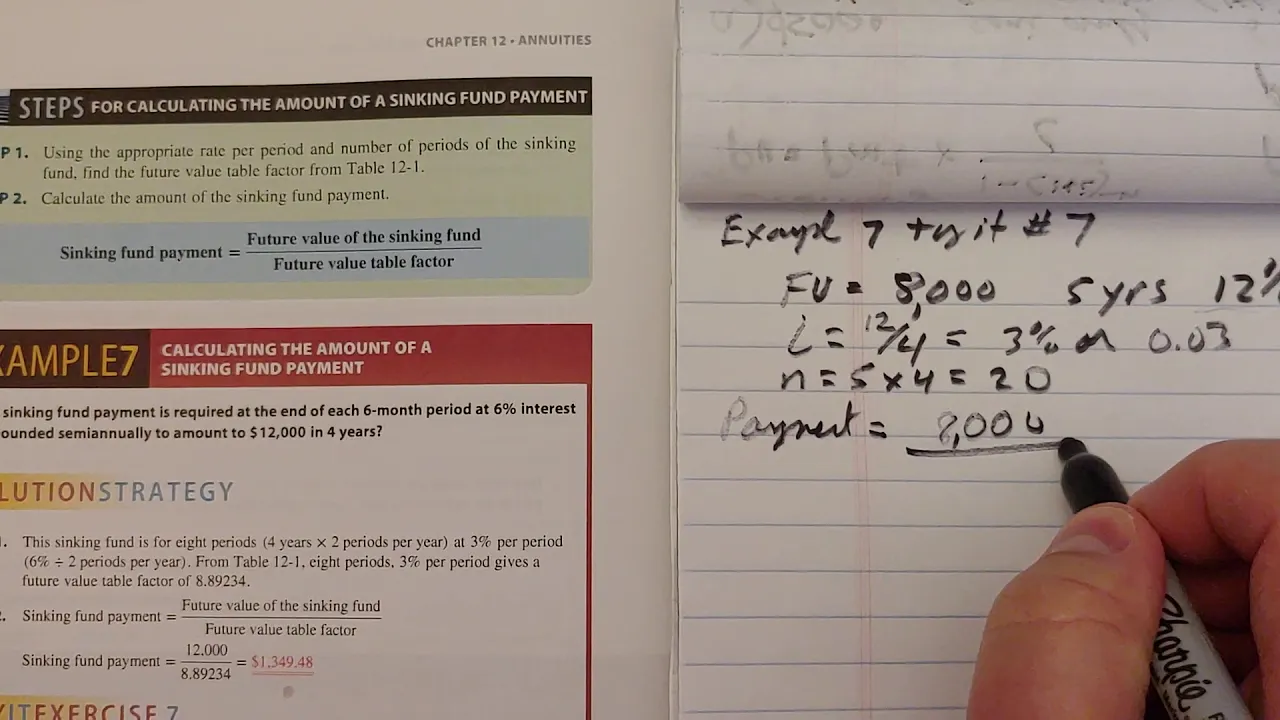 CHAPTER 12 • ANNUITIES
STEPS FOR CALCULATING THE AMOUNT OF A SINKING FUND PAYMENT
P 1. Using the appropriate rate per period and number of periods of the sinking
fund, find the future value table factor from Table 12-1.
P 2. Calculate the amount of the sinking fund payment.
Sinking fund payment = Future value of the sinking fund
Future value table factor
XAMPLE7 CALCULATING THE AMOUNT OF A
SINKING FUND PAYMENT
sinking fund payment is required at the end of each 6-month period at 6% interest
ounded semiannually to amount to $12,000 in 4 years?
LUTIONSTRATEGY
This sinking fund is for eight periods (4 years × 2 periods per year) at 3% per period
(6% ÷ 2 periods per year). From Table 12-1, eight periods, 3% per period gives a
future value table factor of 8.89234.
Sinking fund payment = Future value of the sinking fund
Future value table factor
Sinking fund payment = 12,000
8.89234 = $1,349.48
YITEXERCISE 7
Exampl 7 try it # 7
FV = 8,000 5 yrs 12%
i = 12/4 = 3% or 0.03
n = 5 x 4 = 20
Payment = 8,000
Sharpie